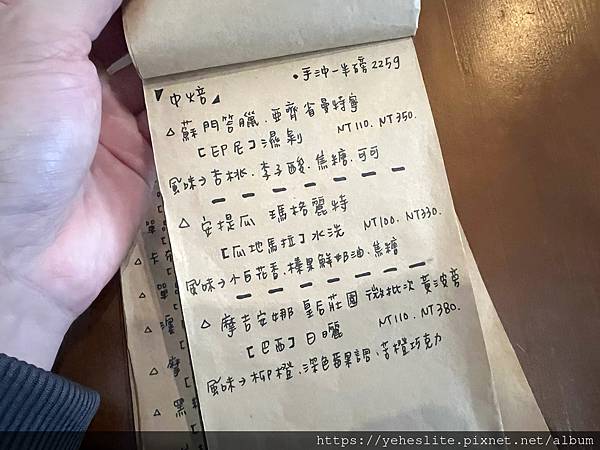 中焙
•手沖一半磅 225g
△ 蘇門答臘．亞齊省曼特寧
[印尼] 濕剝 NT110．NT350.
風味→杏桃．李子酸．焦糖．可可
△ 安提瓜 瑪格麗特
[瓜地馬拉] 水洗 NT100．NT330.
風味→小白花香．榛果鮮奶油．焦糖
△ 摩吉安娜 皇后莊園 微批次 黃波旁
[巴西] 日曬 NT110．NT380.
風味→柳橙．深色蘋果調．苦橙巧克力
https://yeheslite.pixnet.net/album